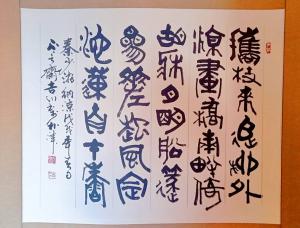 攜杖来追柳外
涼畫橋南畔倚
胡牀月明船篴
參差起風定
池蓮自在香
秦少游納涼戊戌年春月